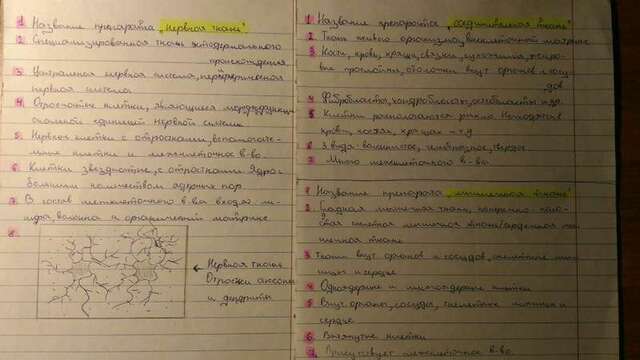 1 Название препарата „нервная ткань"
2 Специализированная ткань эктодермального
происхождения
3 Центральная нервная система, периферическая
нервная система
4 Отростчатые клетки, являющиеся
единицей нервной системы
5 Нервные клетки с отростками, вспомогатель-
ные клетки и межклеточное в-во.
6 Клетки звездчатые, с отростками. Ядро с
большим количеством ядерных пор
7 В состав межклеточного в-ва входят
волокна и органический матрикс
8
← Нервная ткань
Отростки аксоны
и дендриты
1 Название препарата „соединительная ткань"
2 Ткань живого организма, внеклеточный матрикс
3 Кости, кровь, хрящи, связки, сухожилия, жиро-
вые прослойки, оболочки внут органов и сосу-
дов
4 Фибробласты, хондробласты, остеобласты и др.
5 Клетки расположены рыхло. Находятся в
крови, костях, хрящах и т.д
6 3 вида- волокнистое, студенистое, твёрдое
7 Много межклеточного в-ва.
1 Название препарата „мышечная ткань"
2 Гладкая мышечная ткань, поперечно-поло-
сатая скелетная мышечная ткань, сердечная мы-
шечная ткань
3 Ткани внут органов и сосудов, скелетные мы-
шцы и сердце
4 Одноядерные и многоядерные клетки
5 Внут органы, сосуды, скелетные мышцы и
сердце
6 Вытянутые клетки
7 Присутствует межклеточное в-во